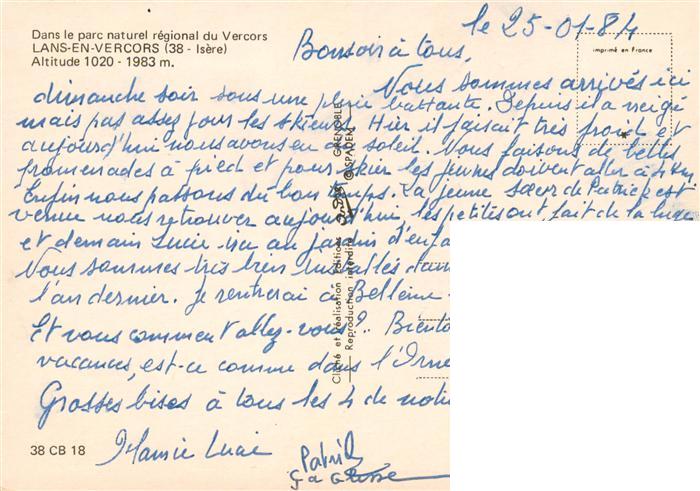 Dans le parc naturel régional du Vercors
LANS-EN-VERCORS (38 - Isère)
Altitude 1020 - 1983 m.
le 25-01-84
imprimé en France
Bonsoir à tous,
Nous sommes arrivés ici
dimanche soir sous une pluie battante. Depuis il a neigé
mais pas assez pour les skieurs. Hier il faisait très froid et
aujourd'hui nous avons eu du soleil. Nous faisons de belles
promenades à pied et pour skier les jeunes doivent aller à 4 km.
Enfin nous passons du bon temps. La jeune sœur de Patrice est
venue nous retrouver aujourd'hui, les petits ont fait de la luge
et demain Lucie ira au jardin d'enfa
Nous sommes très bien installés dans
l'an dernier. Je rentrerai à Bellême
Et vous comment allez-vous ? Bientô
vacances, est-ce comme dans l'Orne
Grosses bises à tous les 4 de not
38 CB 18
Mamie Lucie
Patri
ça Glisse
Cliché et Réalisation Editions GRENOBLE
Reproduction interdite SPADEM